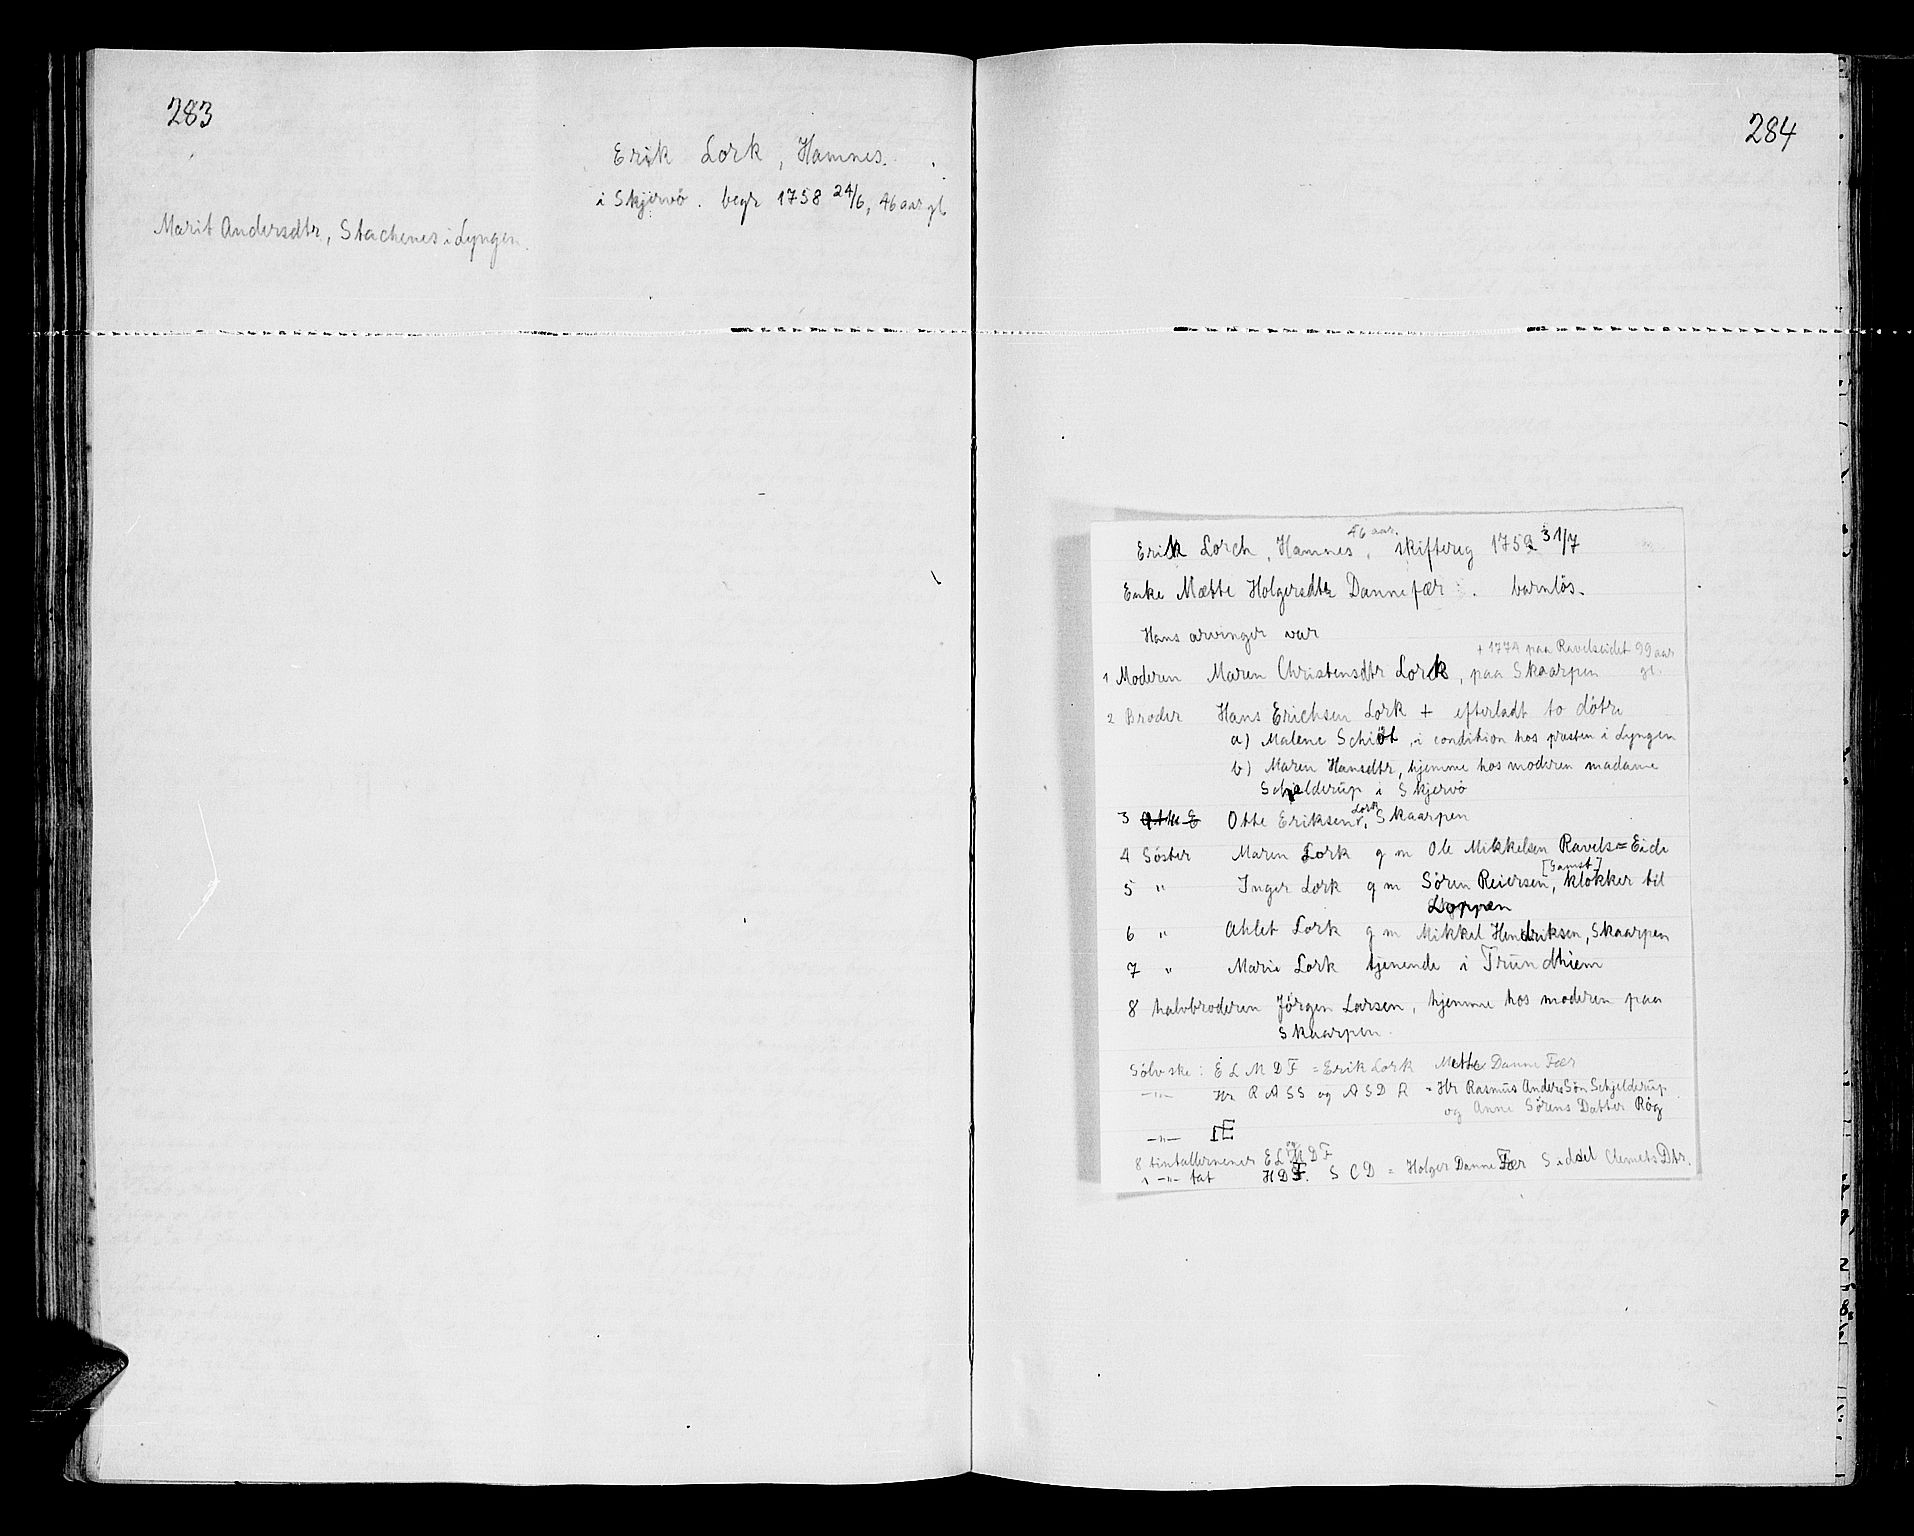 283
Erik Lork, Hamnes.
i Skjervö. begr 1758 24/6, 46 aar gl
Marit Andersdtr, Stachenes i Lyngen.
284
46 aar.
Erik Lorch, Hamnes, skiftereg 1759 31/7
Enke Mætte Holgersdtr Dannefær. barnlös.
Hans arvinger var
+ 1774 paa Ravelseidet 99 aar gl.
1 Moderen Maren Christensdtr Lork, paa Skaarpen
2 Broder Hans Erichsen Lork + efterladt to dötre
a) Malene Schiöt, i condition hos præsten i Lyngen
b) Maren Hansdtr, hjemme hos moderen madame
Schjelderup i Skjervö
3 Otte E Otte Eriksen Lork, Skaarpen
4 Söster Maren Lork g m Ole Mikkelsen Ravels=Eide
[Gamst]
5 " Inger Lork g m Sören Reiersen, klokker til
Loppen
6 " Ahlet Lork g m Mikkel Hendriksen, Skaarpen
7 " Marie Lork tjenende i Trundhiem
8 halvbroderen Jörgen Larsen, hjemme hos moderen paa
Skaarpen.
Sölvske: E L M D F = Erik Lork Mette Danne Fær
—"— Hr R A S S og A S D R = Hr Rasmus Anders Sön Schjelderup
og Anne Sörens Datter Rög
—"— IE
8 tintallerkener E L og M D F
1 —"— fat H D F. S C D = Holger Danne Fær Sidsel Clemets Dtr.